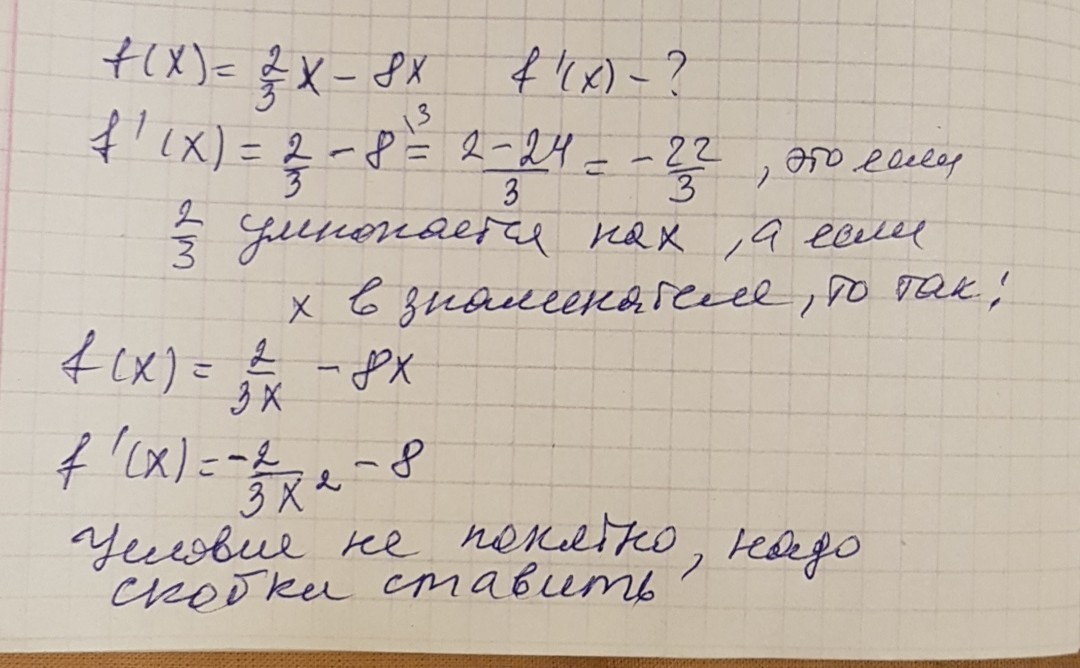 f(x) = 2/3 x - 8x   f'(x) - ?
f'(x) = 2/3 - 8\3 = 2-24/3 = - 22/3 , это если
2/3 умножается на x , а если
x в знаменателе, то так:
f(x) = 2/3x - 8x
f'(x) = -2/3x² - 8
Условие не понятно, надо
скобки ставить